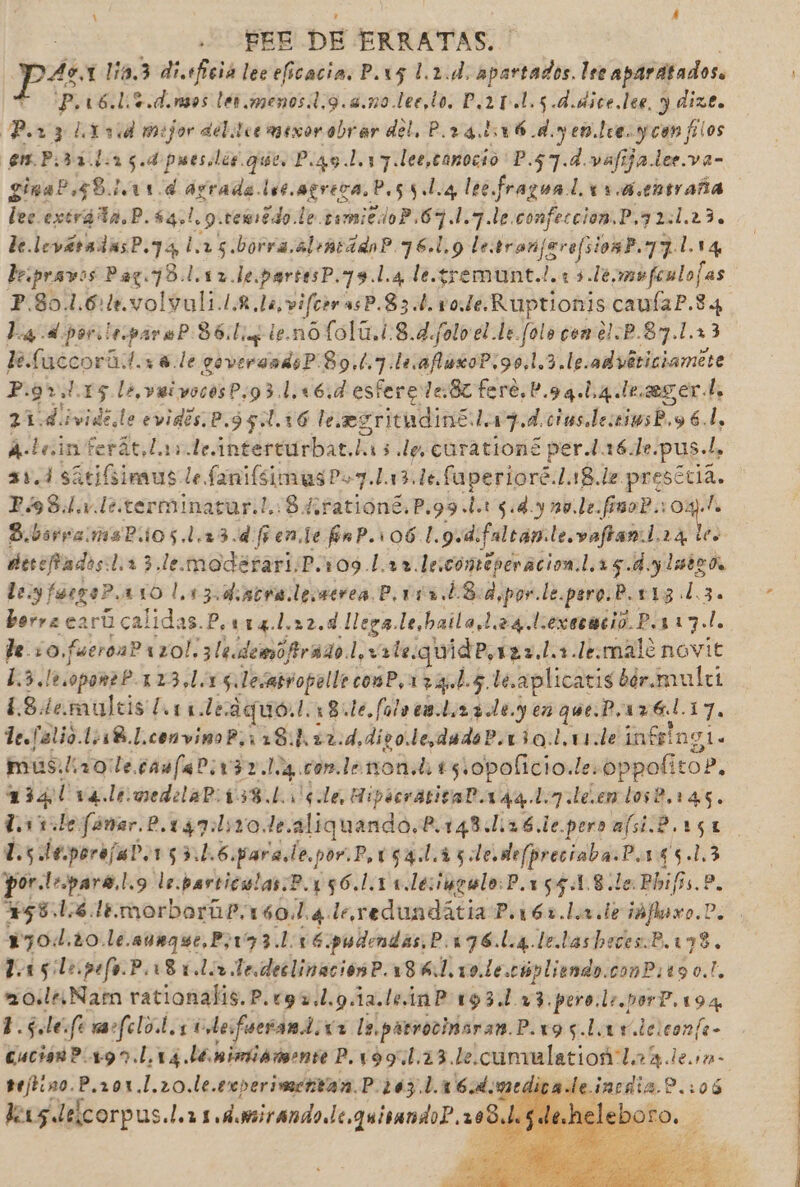 FEE DE ERRATAS.
PAg.1 lin.3 di.eficia lee eficacia. P.15 l.2.d. apartados. lee aparatados.
P.16.l.2.d.mos lee.menos.l.9.a.no.lee,lo. P.21.l.5.d.dice.lee, y dize.
P.23 l.11.d mejor del.lee menor obrar del, P.24.l.16.d.y en.lee.y con filos
en.P.31.l.25.d pues.lee.que. P.49.l.17.lee,conocio P.57.d.vasija.lee.va-
gina P.58.l.11.d agrada.lee.agrega.P.55.l.4 lee.fragua l.11.d.entraña
lee extraña.P.64.l.9.teniedo.le temiēdo P.67.l.7.le confeccion.P.72.l.23.
le.levātadas P.74 l.25.borra.alentādo P.76.l.9 le.transgression P.77.l.14
le.pravos Pag.78.l.12.le.partes P.79.l.4 le.tremunt.l.13.le.musculosas
P.80.l.6.le.volvuli.l.8.le,visceras P.83.l.10.le.Ruptionis causa P.84
l.4.d por.le.para P 86.l.4 le.nō solū.l.8.d.solo el.le.solo con él.P.87.l.13
le.succorū.l.16.le governado P 89.l.7.le.afluxo P.90.l.3.le.advētitiamēte
P.92.l.15 le,univoces P.93.l.16.d esfere le.&c ferè.P.94.l.4.le.æger.l.
21.d.ividē.le evidēs.P.95.l.16 le.ægritudinē.l.17.d.cius.le.eius P.96.l.
4.le.in ferāt.l.11.le.interturbat.l.15.le, curationē per.l.16.le.pus.l.
31.d sātissimus le.sanissimus P.97.l.13.le.superiorē.l.18.le presētiā.
P.98.l.1.le.terminatur.l.18.d.rationē.P.99.l.15.d.y no.le.sino P.104.l.
8.borra.ma P.105.l.23.d si en.le sin P.106 l.9.d.faltan.le.vastan.l.24 le.
detestados.l.13.le.moderari.P.109.l.12.le.contēperacion.l.25.d.y luego.
le.y fuego P.110 l.13.d.acra.le.aerea.P.111.l.8.d.por.le.pero.P.113.l.3.
borra earū calidas.P.114.l.22.d llega.le,baila.l.24.l.execució.P.117.l.
le.10.fueron P 120l.3 le.demōstrado.l.vale.quid P.121.l.1.le.malè novit
l.3.le.opone P.123.l.15.le.atropelle con P.124.l.5.le.aplicatis bor.multi
l.8.le.multis l.11.le.a quo.l.18.le.solo en.l.23.le.y en que.P.126.l.17.
le.salió.l.18.l.convino P.128.l.12.d.digo.le,dudo P.130.l.11.le infringi-
mus.l.20 le.causa P.132.l.4.con.le non.l.15.opositicio.le.opposito P.
134.l 14.le.medela P.138.l.15.le, Hipocratica P.144.l.7.le.en los P.145.
l.11.le sanar.P.147.l.10.le.aliquando.P.148.l.26.le.pero asi.P.151
l.5.le.pereza P.153.l.6.para.le.por.P.154.l.25.le.despreciaba.P.155.l.3
por.le.para.l.9 le.particulas.P.156.l.11.le.iugulo.P.155.l.8.le.Phisis.P.
158.l.6.le.morborū P.160.l.4.le,redundātia P.161.l.1.le influxo.P.
170.l.20.le.aunque,P.173.l.16.pudendas.P.176.l.4.le.las heces.P.178.
l.15.le.peso.P.181.l.1.le.declinacion P.186.l.10.le.cūpliendo.con P.190.l.
20.le.Nam rationalis.P.192.l.9.ia.le.in P 193.l 23.pero.le.por P.194
l.5.le.se mesclò.l.11.le.fueran.l.12 le.patrocinaran.P.195.l.11.le.confe-
cucion P.197.l.14.le.nimiamente P.199.l.23.le.cumulation l.24.le.in-
testino.P.201.l.20.le.experimentan.P 203.l.16.d.medica.le.inedia.P.206
l.15.le.corpus.l.21.d.mirando.le.quitando P.208.l.5.de.heleboro.